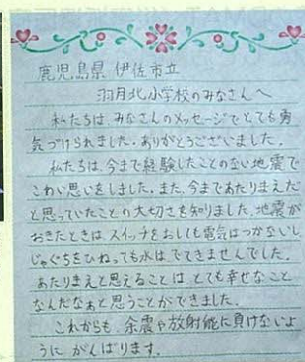 鹿児島県 伊佐市立
羽月北小学校のみなさんへ
私たちは、みなさんのメッセージでとても勇
気づけられました。ありがとうございました。
私たちは、今まで経験したことのない地震で
こわい思いをしました。また、今まであたりまえだ
と思っていたことの大切さを知りました。地震が
おきたときは、スイッチをおしても電気はつかないし
じゃぐちをひねっても水はでてきませんでした。
あたりまえと思えることは とても幸せなこと
なんだなぁと思うことができました。
これからも、余震や放射能に負けないよ
うに がんばります。